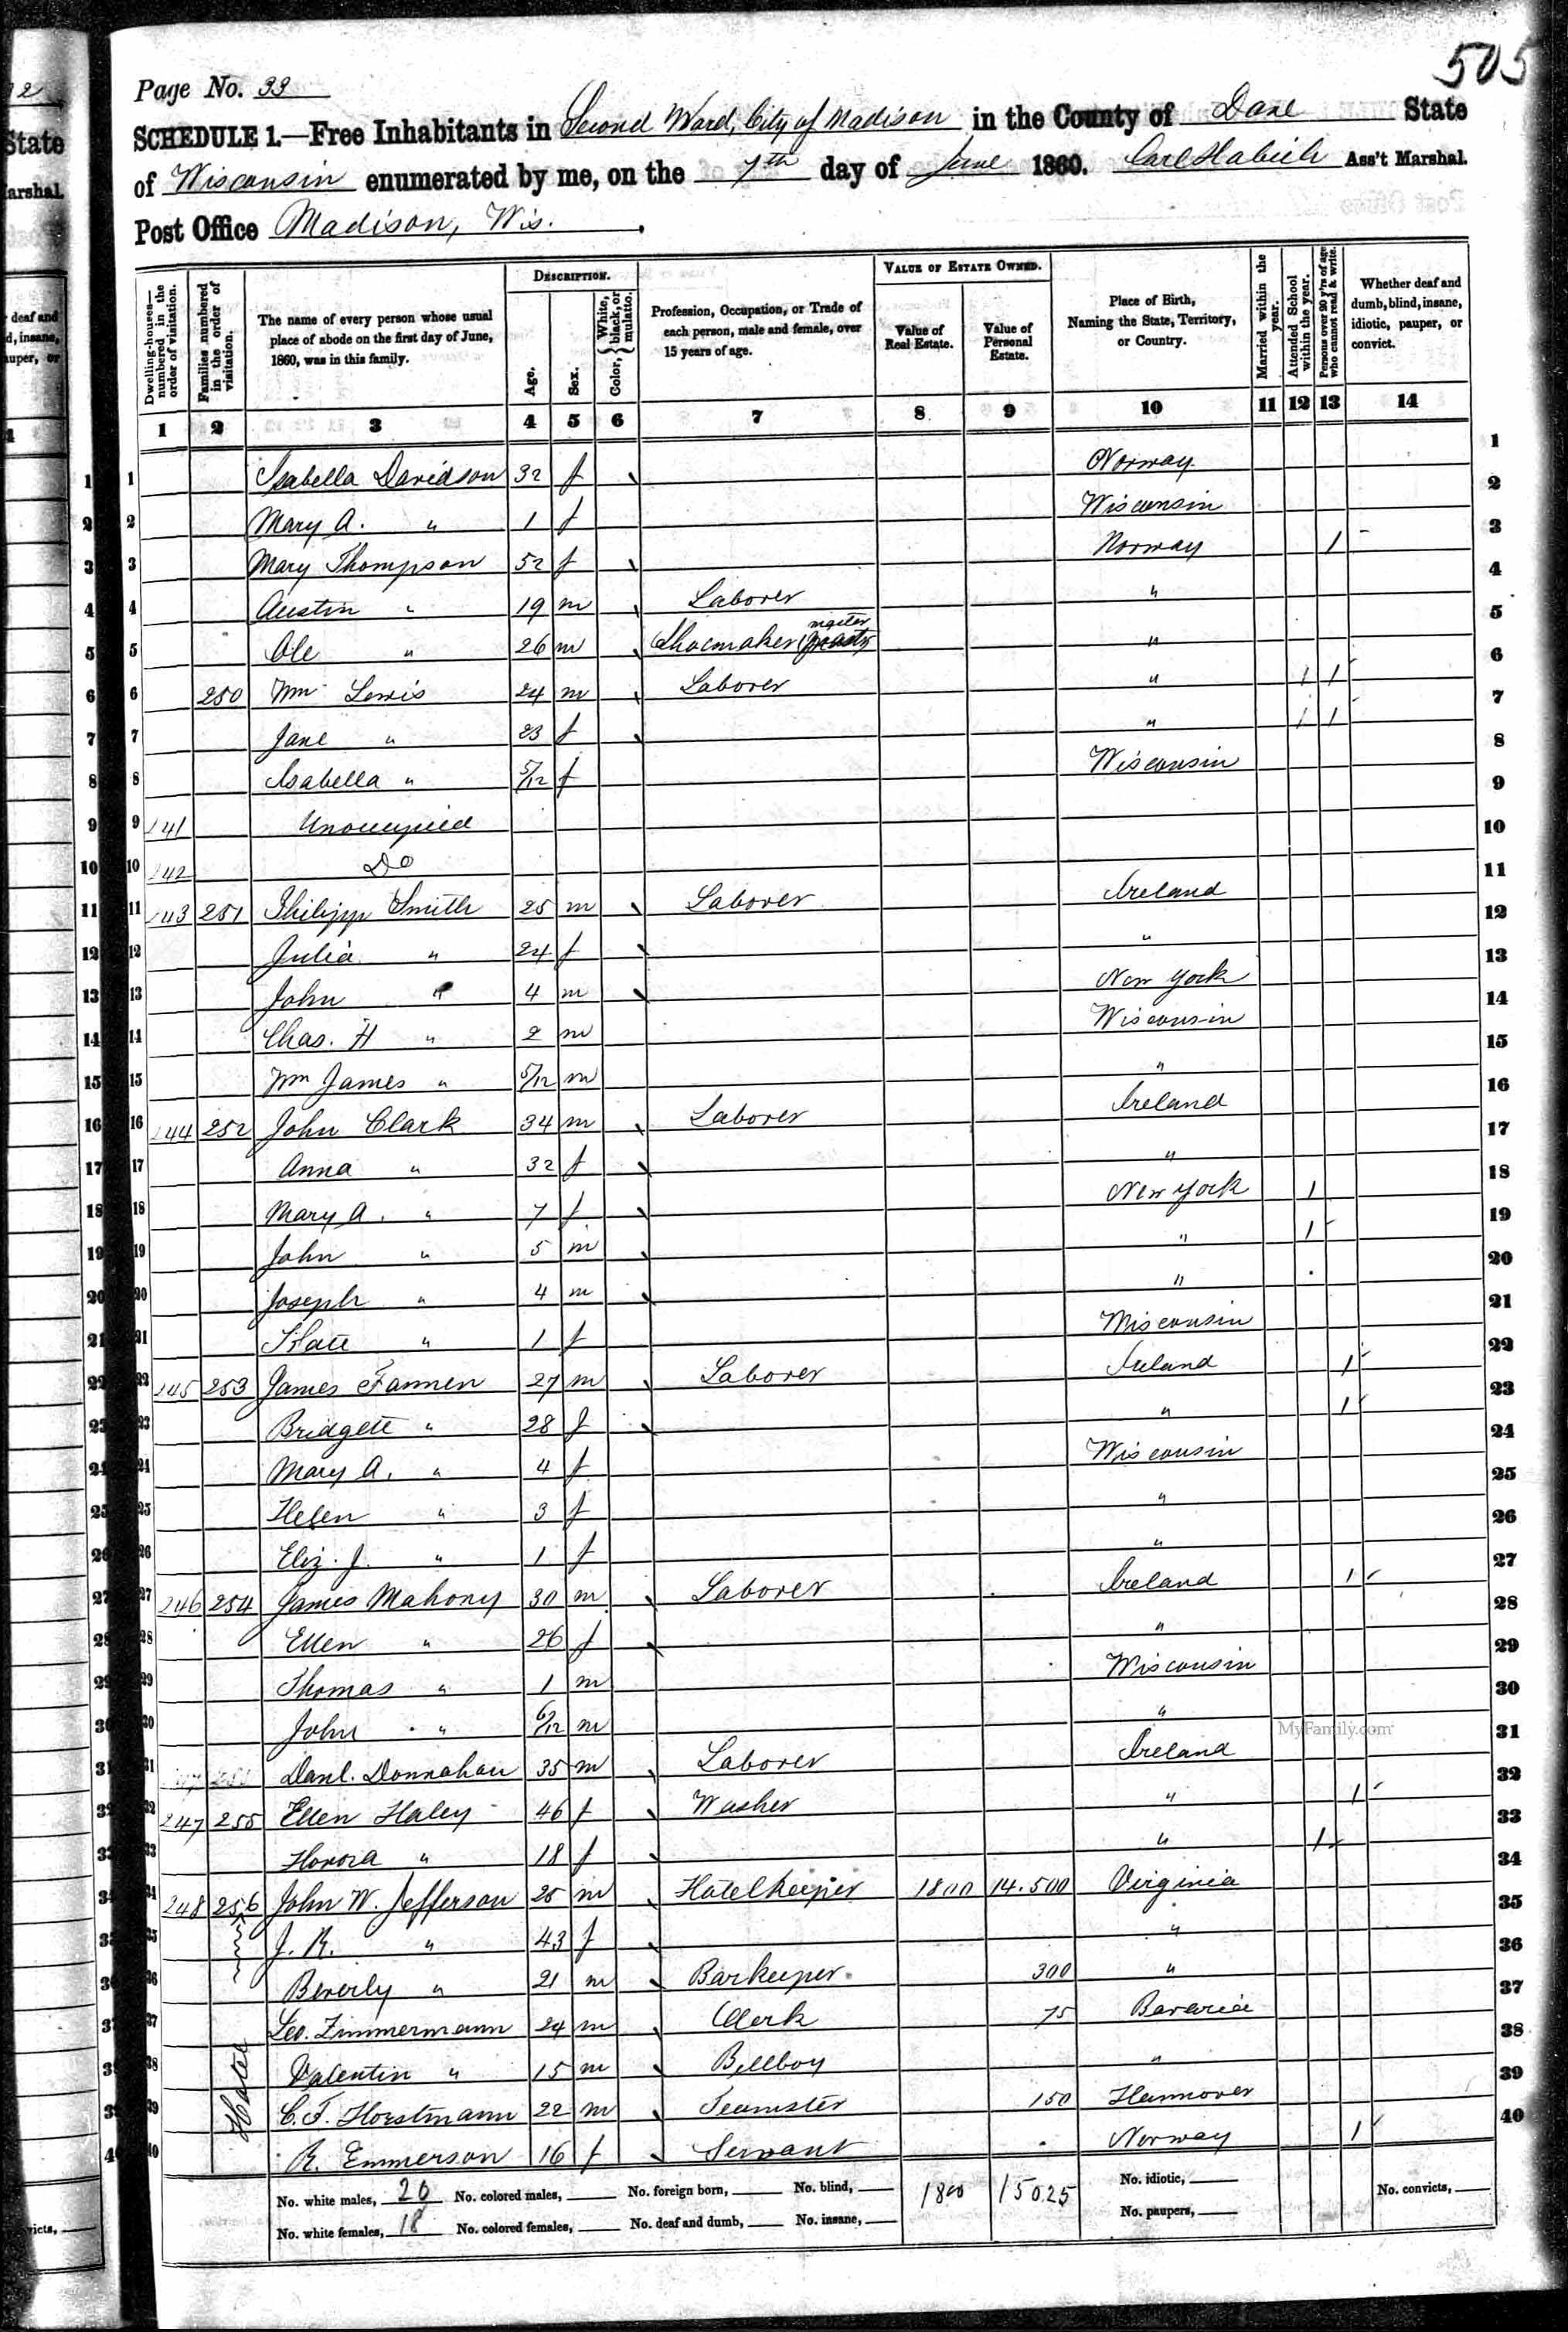 505
Page No. 33
SCHEDULE 1.—Free Inhabitants in Second Ward, City of Madison in the County of Dane State
of Wisconsin enumerated by me, on the 7th day of June 1860. Carl Habich Ass't Marshal.
Post Office Madison, Wis.
Dwelling-houses—numbered in the order of visitation. Families numbered in the order of visitation. The name of every person whose usual place of abode on the first day of June, 1860, was in this family. Description. Age. Sex. Color, White, black, or mulatto. Profession, Occupation, or Trade of each person, male and female, over 15 years of age. Value of Estate Owned. Value of Real Estate. Value of Personal Estate. Place of Birth, Naming the State, Territory, or Country. Married within the year. Attended School within the year. Persons over 20 y'rs of age who cannot read & write. Whether deaf and dumb, blind, insane, idiotic, pauper, or convict.
1 2 3 4 5 6 7 8 9 10 11 12 13 14
1 Isabella Davidson 32 f Norway 1
2 Mary A. " 1 f Wisconsin 2
3 Mary Thompson 52 f Norway / 3
4 Austin " 19 m Laborer " 4
5 Ole " 26 m Shoemaker master " 5
6 250 Wm Lewis 24 m Laborer " / / 6
7 Jane " 23 f " / / 7
8 Isabella " 5/12 f Wisconsin 8
9 241 Unoccupied 9
10 242 Do 10
11 243 251 Philipp Smith 25 m Laborer Ireland 11
12 Julia " 24 f " 12
13 John " 4 m New York 13
14 Chas. H " 2 m Wisconsin 14
15 Wm James " 5/12 m " 15
16 244 252 John Clark 34 m Laborer Ireland 16
17 Anna " 32 f " 17
18 Mary A. " 7 f New York / 18
19 John " 5 m " / 19
20 Joseph " 4 m " 20
21 Kate " 1 f Wisconsin 21
22 245 253 James Fannen 27 m Laborer Ireland / 22
23 Bridgett " 28 f " / 23
24 Mary A. " 4 f Wisconsin 24
25 Helen " 3 f " 25
26 Eliz. J. " 1 f " 26
27 246 254 James Mahony 30 m Laborer Ireland / 27
28 Ellen " 26 f " 28
29 Thomas " 1 m Wisconsin 29
30 John " 6/12 m " 30
31 Danl. Donnahau 35 m Laborer Ireland 31
32 247 255 Ellen Haley 46 f Washer " / 32
33 Honora " 18 f " / 33
34 248 256 John W. Jefferson 25 m Hotelkeeper 1800 14.500 Virginia 34
35 J. R. " 43 f " 35
36 Beverly " 21 m Barkeeper 300 " 36
37 Leo. Zimmermann 24 m Clerk 75 Bavaria 37
38 Valentin " 15 m Bellboy " 38
39 C. F. Horstmann 22 m Teamster 150 Hannover 39
40 R. Emmerson 16 f Servant Norway / 40
Hotel
No. white males, 20 No. colored males, No. foreign born, No. blind, 1800 15025 No. idiotic, No. convicts,
No. white females, 18 No. colored females, No. deaf and dumb, No. insane, No. paupers,
MyFamily.com